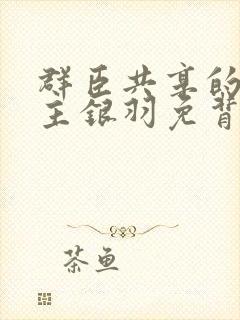 群臣共享的
主银羽免背
茶鱼